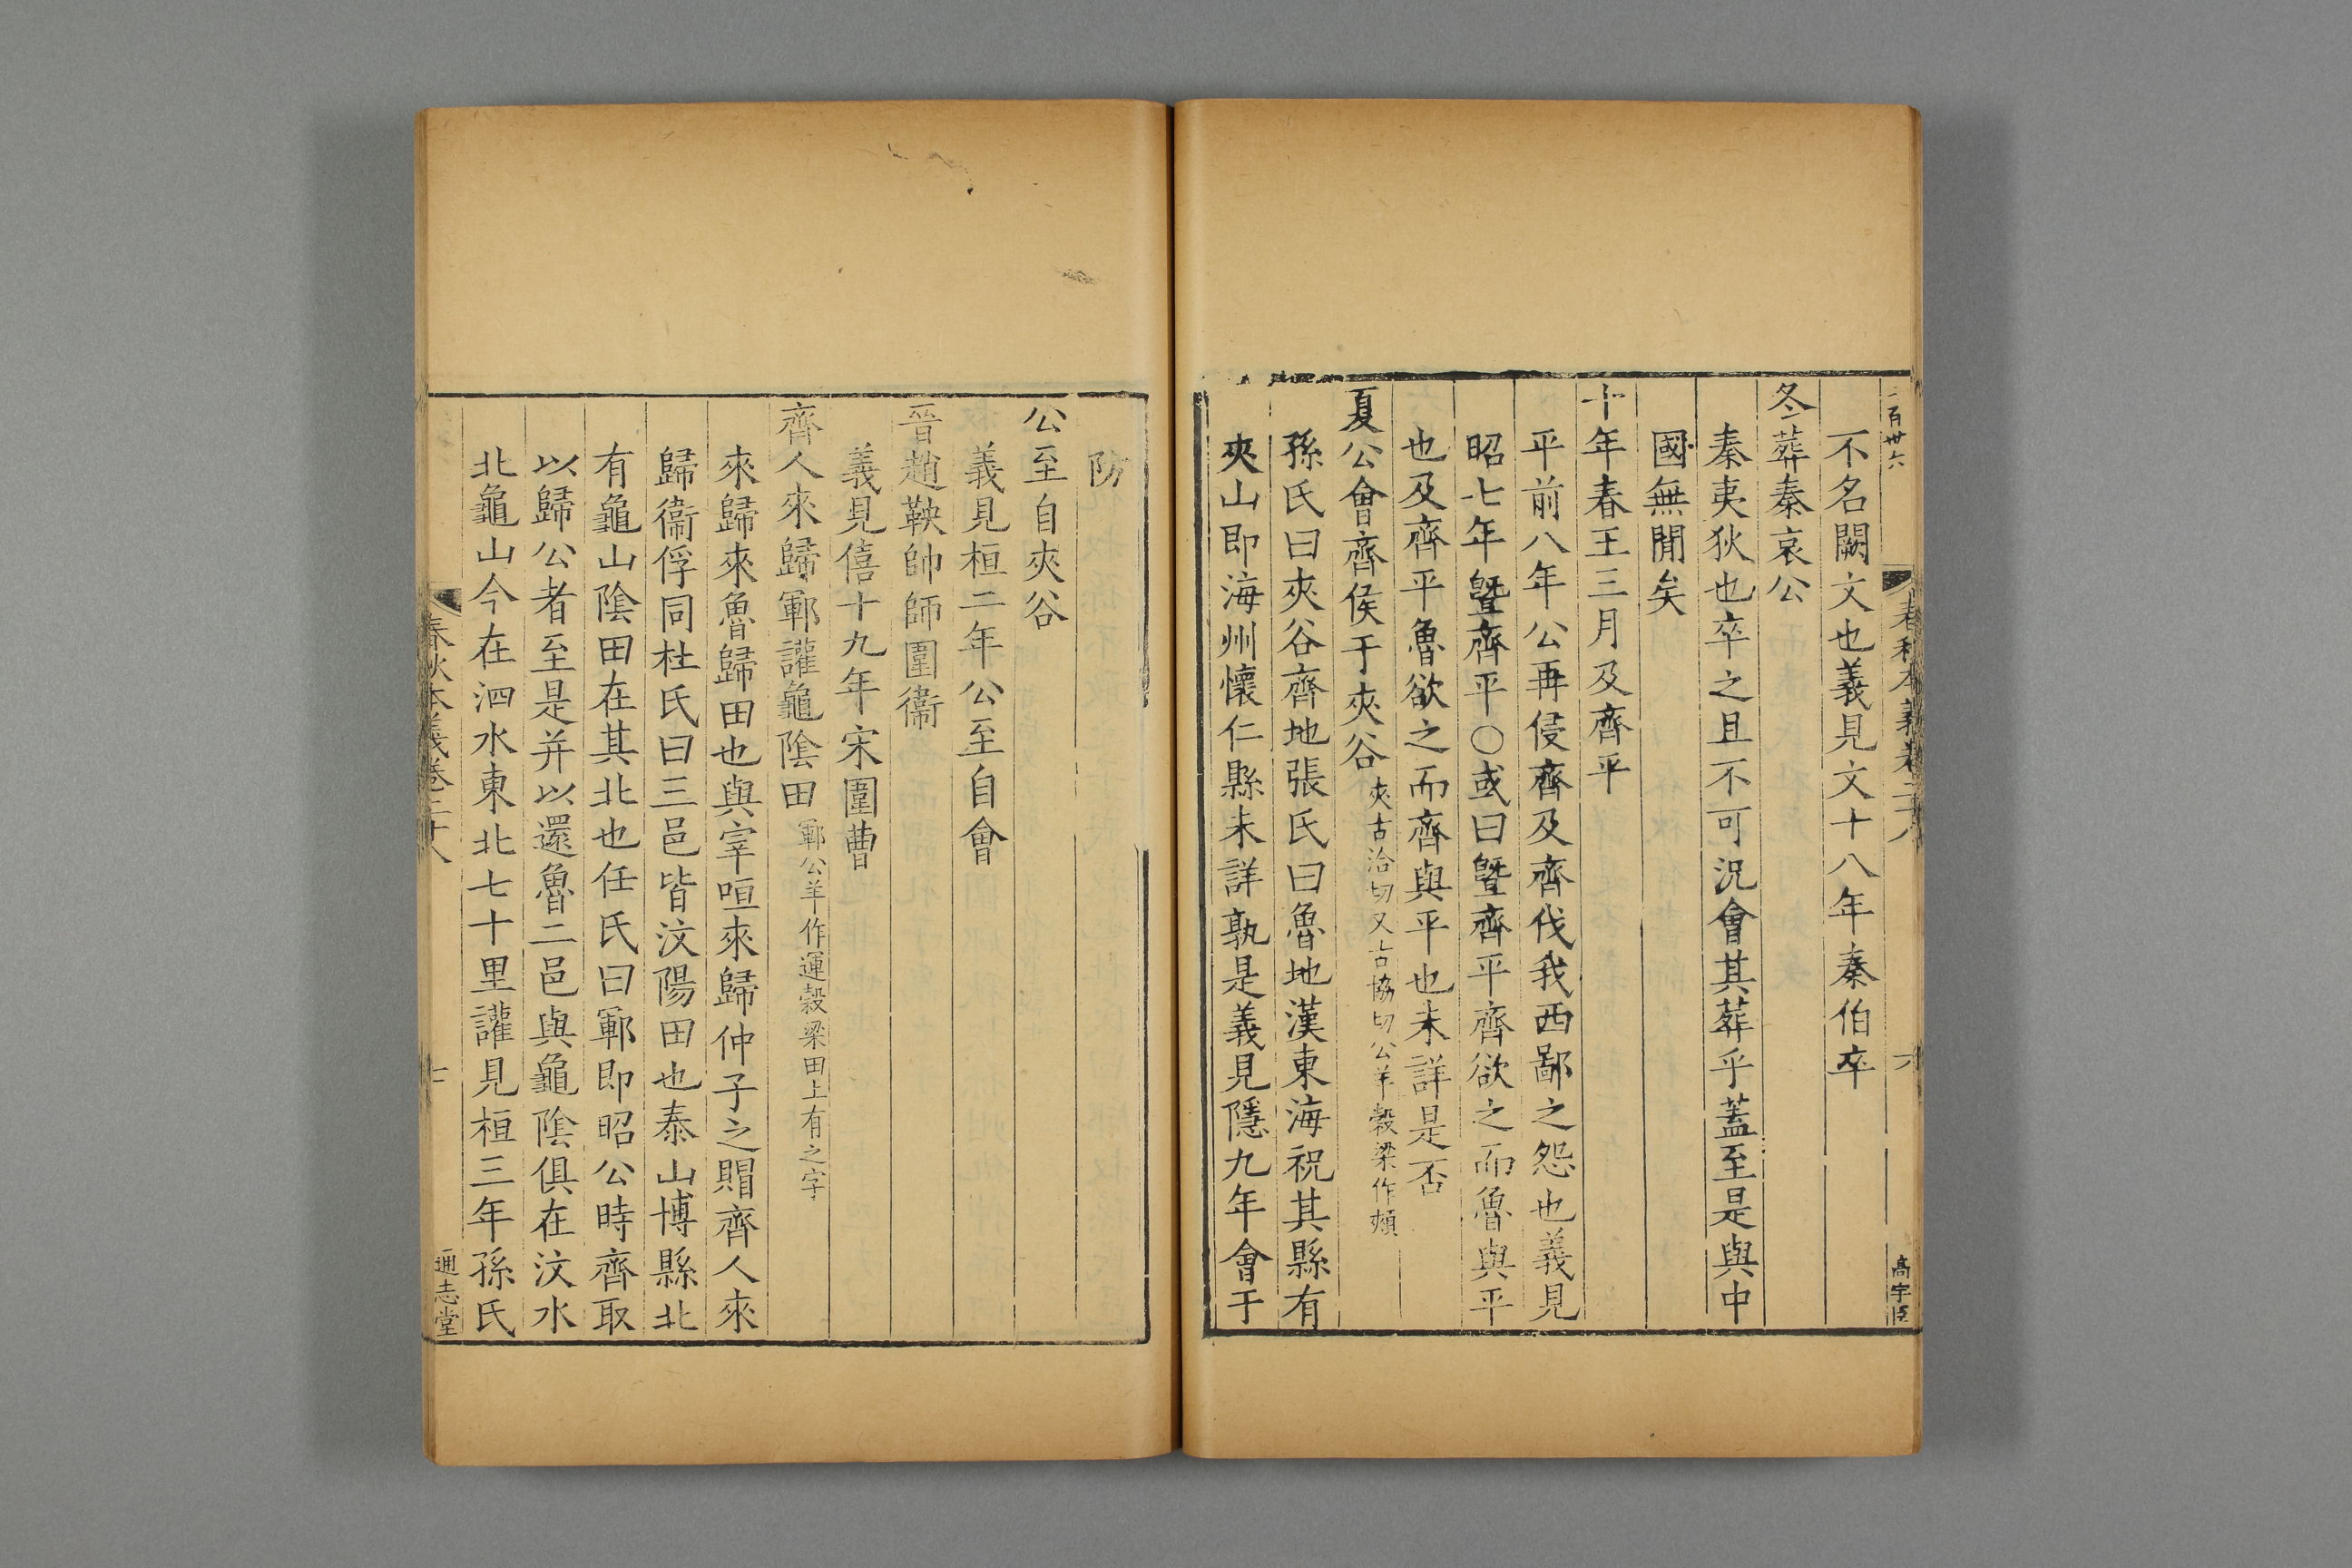 百廿六
春秋本義卷二十八
六
高宇臣
不名闕文也義見文十八年秦伯卒
冬葬秦哀公
秦夷狄也卒之且不可況會其葬乎蓋至是與中
國無聞矣
十年春王三月及齊平
平前八年公再侵齊及齊伐我西鄙之怨也義見
昭七年曁齊平○或曰曁齊平齊欲之而魯與平
也及齊平魯欲之而齊與平也未詳是否
夏公會齊侯于夾谷夾古洽切又古協切公羊穀梁作頰
孫氏曰夾谷齊地張氏曰魯地漢東海祝其縣有
夾山即海州懷仁縣未詳孰是義見隱九年會于
防
公至自夾谷
義見桓二年公至自會
晉趙鞅帥師圍衞
義見僖十九年宋圍曹
齊人來歸鄆讙龜隂田鄆公羊作運穀梁田上有之字
來歸來魯歸田也與宰咺來歸仲子之賵齊人來
歸衞俘同杜氏曰三邑皆汶陽田也泰山博縣北
有龜山隂田在其北也任氏曰鄆即昭公時齊取
以歸公者至是并以還魯二邑與龜隂俱在汶水
北龜山今在泗水東北七十里讙見桓三年孫氏
春秋本義卷二十八
七
通志堂